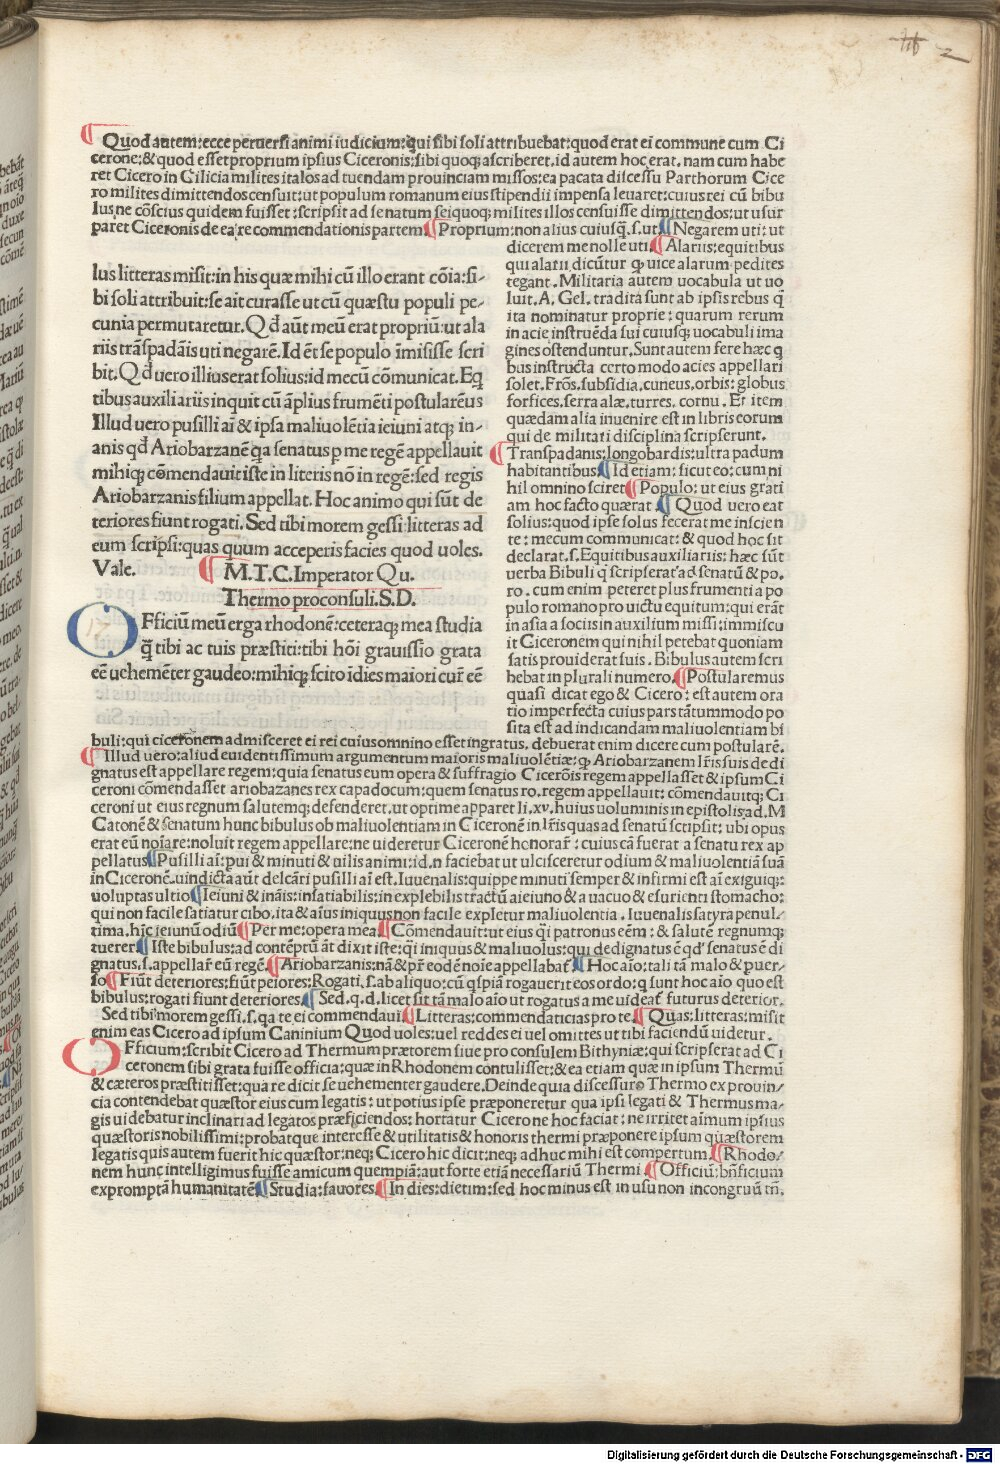 ¶Quod autem: ecce peruersi animi iudicium: qui sibi soli attribuebat: quod erat ei commune cum Ci
cerone: & quod esset proprium ipsius Ciceronis: sibi quoq; ascriberet, id autem hoc erat, nam cum habe
ret Cicero in Cilicia milites italos ad tuendam prouinciam missos: ea pacata discessu Parthorum Cice
ro milites dimittendos censuit: ut populum romanum eius stipendii impensa leuaret: cuius rei cū bibu
lus, ne cōscius quidem fuisset: scripsit ad senatum sei quoq; milites illos censuisse dimittendos: ut usur
paret Ciceronis de ea re commendationis partem ¶Proprium: non alius cuiusq̄. s. ut ¶Negarem uti: ut
dicerem me nolle uti ¶Alariis: equitibus
qui alarii dicūtur q; uice alarum pedites
tegant. Militaria autem uocabula ut uo
luit. A. Gel. tradita sunt ab ipsis rebus q̄
ita nominatur proprie: quarum rerum
in acie instruēda sui cuiusq; uocabuli ima
gines ostenduntur, Sunt autem fere hæc q
bus instructa certo modo acies appellari
solet. Frōs, subsidia, cuneus, orbis: globus
forfices, serra alæ, turres. cornu. Et item
quædam alia inuenire est in libris eorum
qui de militari disciplina scripserunt.
¶Transpadanis: longobardis: ultra padum
habitantibus ¶Id etiam: sicut eo: cum ni
hil omnino sciret ¶Populo: ut eius grati
am hoc facto quærat. ¶Quod uero eat
solius: quod ipse solus fecerat me inscien
te: mecum communicat: & quod hoc sit
declarat. s. Equitibus auxiliariis: hæc sūt
uerba Bibuli q̄ scripserat ad senatū & po.
ro. cum enim peteret plus frumenti a po
pulo romano pro uictu equitum: qui erāt
in asia a sociis in auxilium missi: immiscu
it Ciceronem qui nihil petebat quoniam
satis prouiderat suis. Bibulus autem scri
bebat in plurali numero. ¶Postularemus
quasi dicat ego & Cicero: est autem ora
tio imperfecta cuius pars tātummodo po
sita est ad indicandam maliuolentiam bi
lus litteras misit: in his quæ mihi cū illo erant cōia: si-
bi soli attribuit: se ait curasse ut cū quæstu populi pe-
cunia permutaretur. Qđ aūt meū erat propriū: ut ala
riis trāspadāis uti negarē. Id ēt se populo īmisisse scri
bit. Qđ uero illius erat solius: id mecū cōmunicat. Eq̄
tibus auxiliariis inquit cū āplius frumēti postularēus
Illud uero pusilli ai & ipsa maliuolētia ieiuni atq; in-
anis qđ Ariobarzanē qa senatus p me regē appellauit
mihiq; cōmendauit iste in literis nō in regē: sed regis
Ariobarzanis filium appellat. Hoc animo qui sūt de
teriores fiunt rogati. Sed tibi morem gessi: litteras ad
eum scripsi: quas quum acceperis facies quod uoles.
Vale. ¶M. T. C. Imperator Qu.
Thermo proconsuli. S. D.
OFficiū meū erga rhodonē: ceteraq; mea studia
q̄ tibi ac tuis præstiti: tibi hōi grauissio grata
eē uehemēter gaudeo: mihiq; scito idies maiori curę eē
buli: qui ciceronem admisceret ei rei cuius omnino esset ingratus. debuerat enim dicere cum postularē.
¶Illud uero: aliud euidentissimum argumentum maioris maliuolētiæ: q; Ariobarzanem lr̄is suis de di
gnatus est appellare regem: quia senatus eum opera & suffragio Cicerōis regem appellasset & ipsum Ci
ceroni cōmendasset ariobazanes rex capadocum: quem senatus ro. regem appellauit: cōmendauitq; Ci
ceroni ut eius regnum salutemq; defenderet, ut optime apparet li. xv. huius uoluminis in epistolis ad. M
Catonē & senatum hunc bibulus ob maliuolentiam in Ciceronē in lr̄is quas ad senatū scripsit: ubi opus
erat eū noiare: noluit regem appellare: ne uideretur Ciceronē honorar̄: cuius cā fuerat a senatu rex ap
pellatus ¶Pusilli ai: pui & minuti & uilis animi: id. n faciebat ut ulcisceretur odium & maliuolentiā suā
in Ciceronē. uindicta aūt delcāri pusilli ai est. Iuuenalis: quippe minuti semper & infirmi est ai exiguiq:
uoluptas ultio ¶Ieiuni & inais: insatiabilis: in explebilis tractū a ieiuno & a uacuo & esurienti stomacho:
qui non facile satiatur cibo, ita & aius iniquus non facile expletur maliuolentia. Iuuenalis satyra penul-
tima, hīc ieiunū odiū ¶Per me: opera mea ¶Cōmendauit: ut eius q̄i patronus eēm: & salutē regnumq;
tuerer ¶Iste bibulus: ad contēptū āt dixit iste: q̄i iniquus & maliuolus: qui dedignatus ē qđ senatus ē di
gnatus, s. appellar̄ eū regē ¶Ariobarzanis: nā & pr̄ eodē noie appellabat̄ ¶Hoc aio: tali tā malo & puer-
so ¶Fiūt deteriores: fiūt peiores: Rogati. s. ab aliquo: cū q̄spiā rogauerit eos ordo: q sunt hoc aio quo est
bibulus: rogati fiunt deteriores ¶Sed. q. d. licet sit tā malo aio ut rogatus a me uideat̄ futurus deterior.
Sed tibi morem gessi. s. qa te ei commendaui ¶Litteras: commendaticias pro te ¶Quas: litteras: misit
enim eas Cicero ad ipsum Caninium Quod uoles: uel reddes ei uel omittes ut tibi faciendū uidetur.
OFficium: scribit Cicero ad Thermum prætorem siue pro consulem Bithyniæ: qui scripserat ad Ci
ceronem sibi grata fuisse officia: quæ in Rhodonem contulisset: & ea etiam quæ in ipsum Thermū
& cæteros præstitisset: qua re dicit se uehementer gaudere. Deinde quia discessuro Thermo ex prouin-
cia contendebat quæstor eius cum legatis: ut potius ipse præponeretur qua ipsi legati & Thermus ma-
gis uidebatur inclinari ad legatos præficiendos: hortatur Cicero ne hoc faciat: ne irritet aimum ipsius
quæstoris nobilissimi: probatque interesse & utilitatis & honoris thermi præponere ipsum quæstorem
legatis quis autem fuerit hic quæstor: neq; Cicero hic dicit: neq; adhuc mihi est compertum. ¶Rhodo-
nem hunc intelligimus fuisse amicum quempiā: aut forte etiā necessariū Thermi ¶Officiū: bn̄ficium
expromptā humanitatē ¶Studia: fauores ¶In dies: dietim: sed hoc minus est in usu non incongruū tn̄.
Digitalisierung gefördert durch die Deutsche Forschungsgemeinschaft - DFG